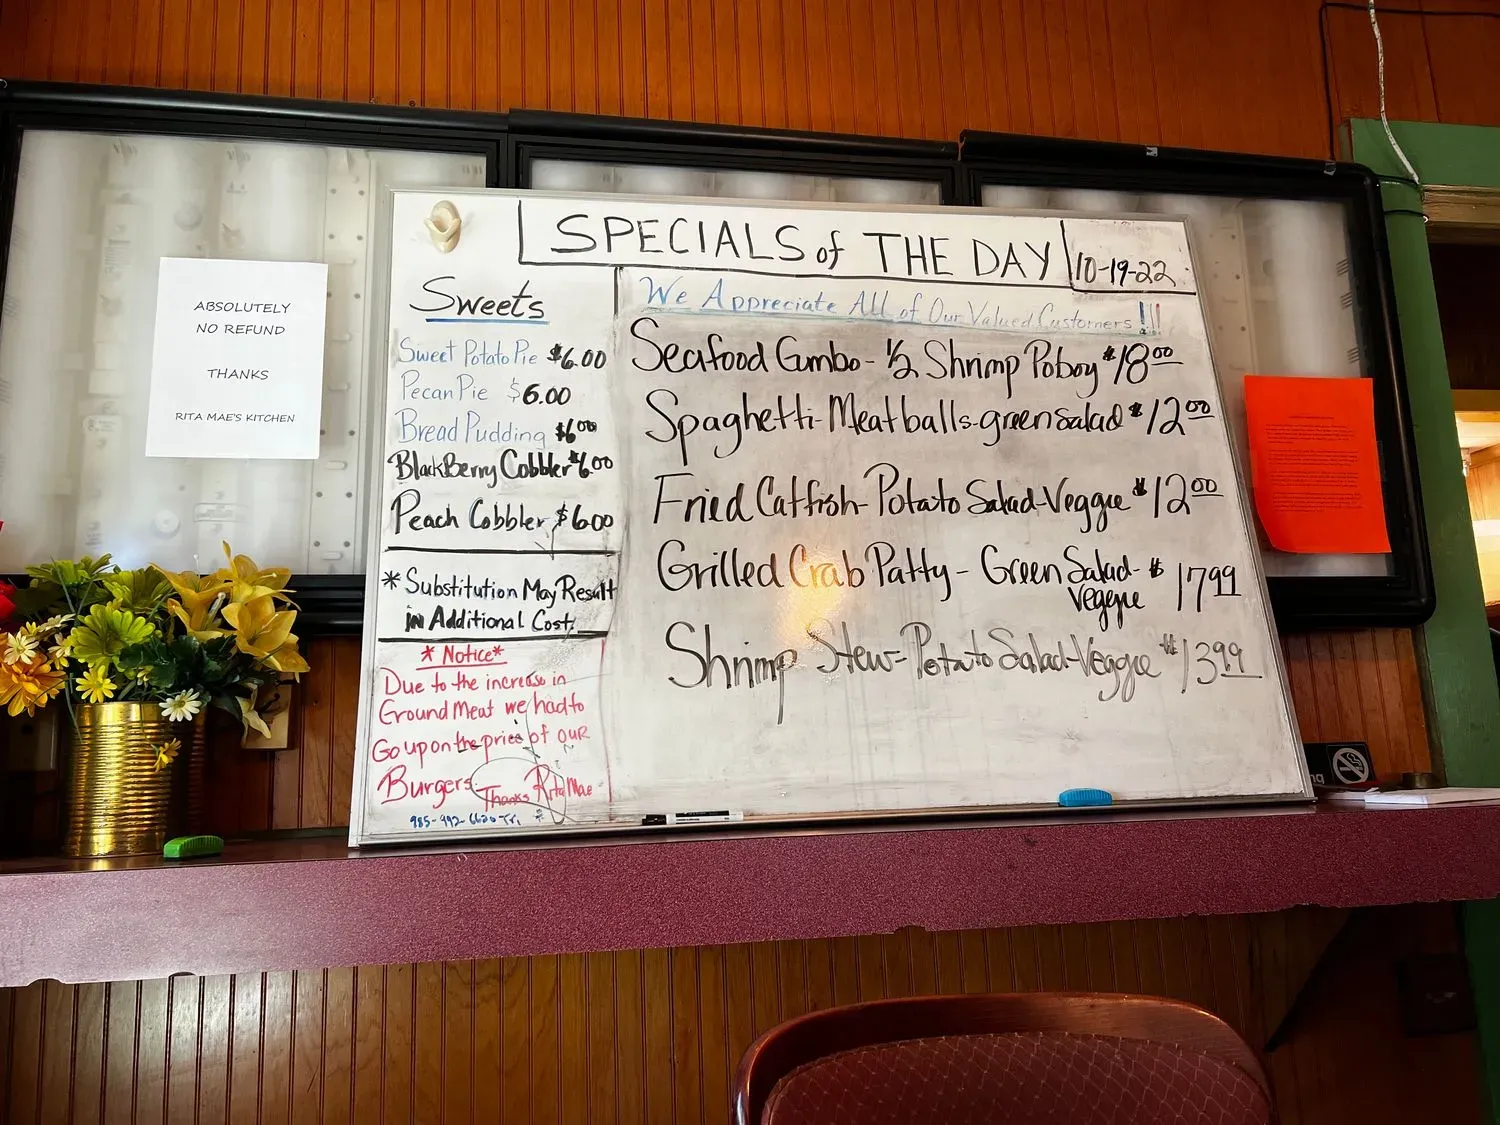 ABSOLUTELY
NO REFUND
THANKS
RITA MAE'S KITCHEN
SPECIALS of THE DAY
10-19-22
Sweets
Sweet Potato Pie $6.00
Pecan Pie $6.00
Bread Pudding $6.00
BlackBerry Cobbler $6.00
Peach Cobbler $6.00
* Substitution May Result
in Additional Cost.
* Notice *
Due to the increase in
Ground Meat we had to
Go up on the price of our
Burgers Thanks Rita Mae
985-992-
We Appreciate All of Our Valued Customers!!!
Seafood Gumbo - 1/2 Shrimp Poboy $18.00
Spaghetti-Meatballs-green salad $12.00
Fried Catfish-Potato Salad-Veggie $12.00
Grilled Crab Patty - Green Salad- $17.99
Veggie
Shrimp Stew-Potato Salad-Veggie $13.99
ng